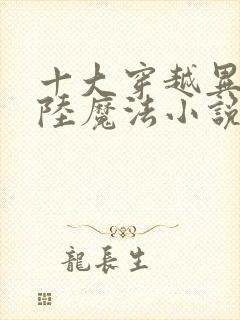 十大穿越異
陸魔法小說
龍長生